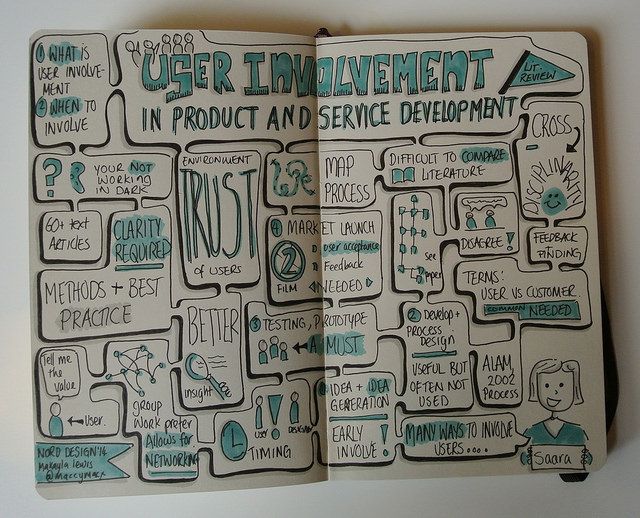 ① WHAT is
USER INVOLVE-
MENT
② WHEN TO
INVOLVE
USER INVOLVEMENT
LIT.
REVIEW
IN PRODUCT AND SERVICE DEVELOPMENT
CROSS
DISCIPLINARITY
? ? YOUR NOT
WORKING
IN DARK
ENVIRONMENT
TRUST
OF USERS
MAP
PROCESS
DIFFICULT TO COMPARE
LITERATURE
60+ text
ARTICLES
CLARITY
REQUIRED
④ MARKET LAUNCH
user acceptance
Feedback
NEEDED
2
FILM
see
paper
DISAGREE!
FEEDBACK
+
FINDING
METHODS + BEST
PRACTICE
TERMS:
USER VS CUSTOMER.
COMMON NEEDED
BETTER
insight
③ TESTING, PROTOTYPE
A MUST
② Develop +
PROCESS
DESIGN
USEFUL BUT
OFTEN NOT
USED
ALAM,
2002
PROCESS
Tell me
the value
User.
group
work prefer
Allows for
NETWORKING
IDEA + IDEA
GENERATION
USER
DESIGNER
TIMING
EARLY
INVOLVE!
MANY WAYS TO INVOLVE
USERS....
Saara
NORD DESIGN'14
Makayla Lewis
@maccymacx